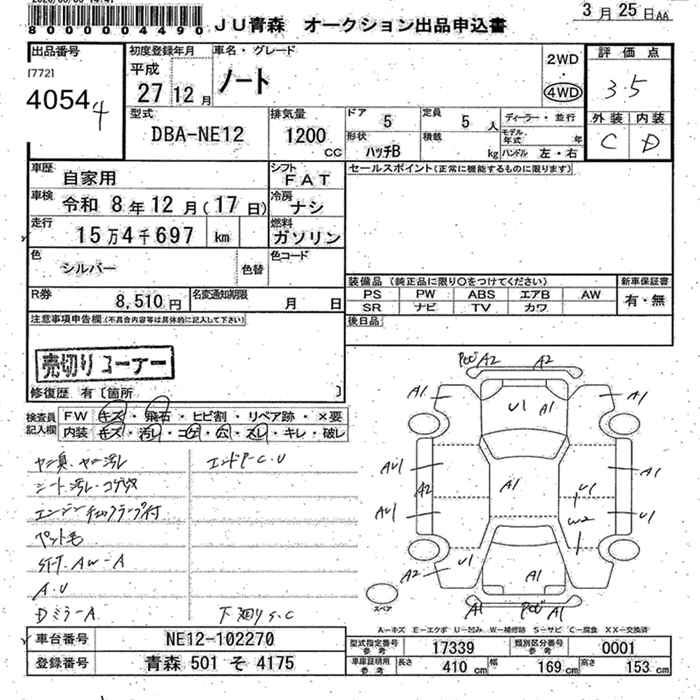 80000004490 JU青森 オークション出品申込書
3月25日AA
出品番号
[772]
4054 4
初度登録年月
平成
27年12月
車名・グレード
ノート
2WD
・
4WD
評価点
3.5
外装 内装
C D
型式
DBA-NE12
排気量
1200
CC
ドア
5
定員
5 人
形状
ハッチB
積載
kg
ディーラー・並行
モデル年式 年
ハンドル 左・右
車歴
自家用
シフト
FAT
車検
令和 8年12月(17日)
冷房
ナシ
走行
15万4千697 km
燃料
ガソリン
色
シルバー
色替
色コード
R券
8,510円
名変通知期限
月 日
セールスポイント(正常に機能するものに限ります)
装備品 (純正品に限り○をつけてください)
PS PW ABS エアB AW
SR ナビ TV カワ
新車保証書
有・無
後日品
注意事項申告欄(不具合内容等は具体的に記入して下さい)
売切りコーナー
修復歴 有〔箇所 〕
検査員記入欄
FW キズ・飛石・ヒビ割・リペア跡・×要
内装 キズ・汚レ・コゲ・穴・スレ・キレ・破レ
シート汚レ・コゲ穴
エンジンチェックランプ付
ペット毛
ST-T. AW-A
A.U
Dミラー A
エンドP-C.U
下廻りS.C
PヒビA2 A2
A1 U1 A1 A1
AU1 A2 A1 U1 A1
AU1 W2 U1
A2 U1 A1
A1 Pヒビ A1
スペア
A－キズ E－エクボ U－凹み W－補修跡 S－サビ C－腐食 XX－交換済
車台番号 NE12-102270
登録番号 青森 501 そ 4175
型式指定番号 参考 17339
類別区分番号 参考 0001
車庫証明用 参考 長さ 410cm 幅 169cm 高さ 153cm